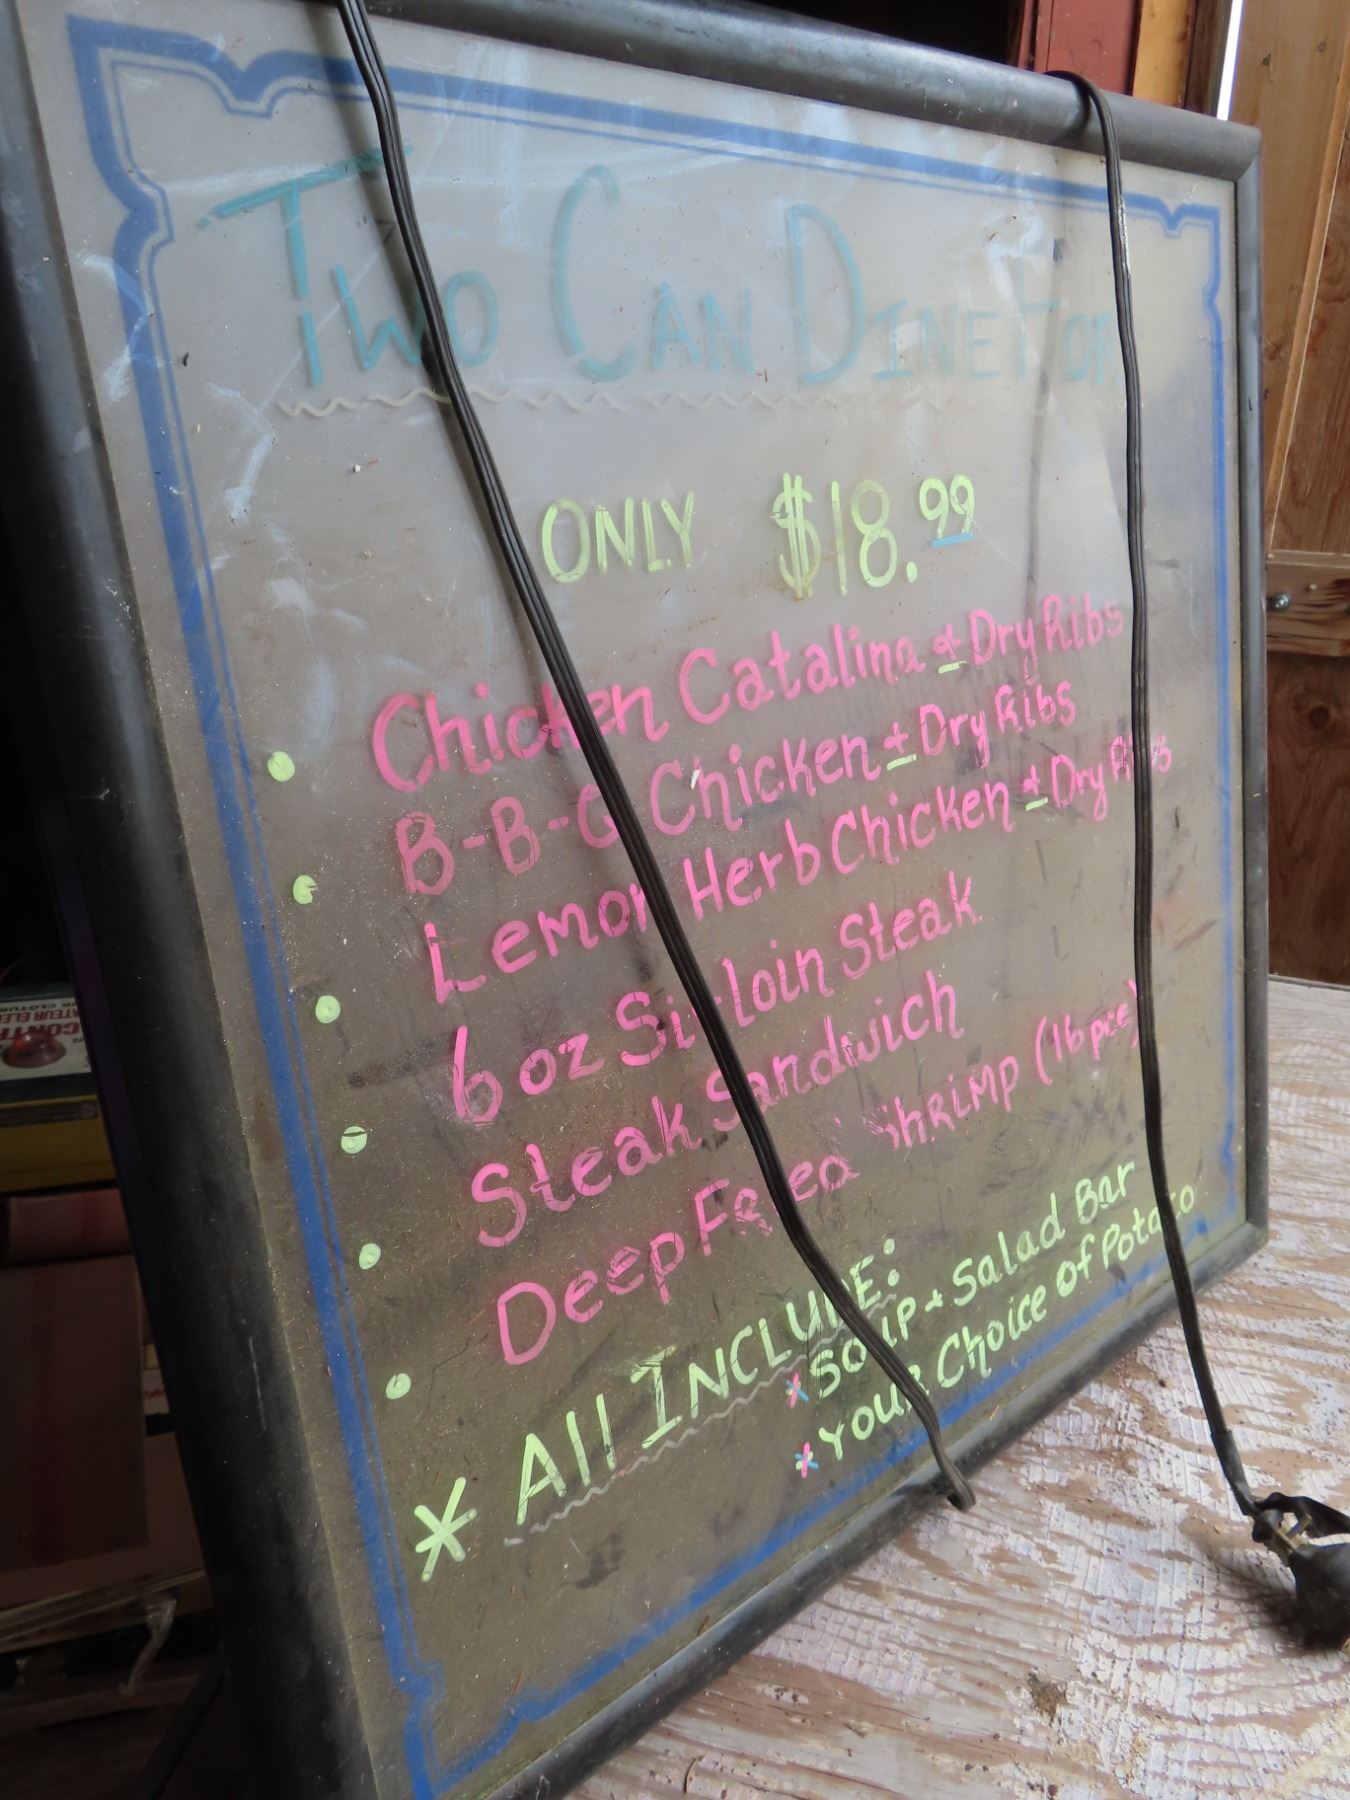 Two Can Dine For
ONLY $18.99
• Chicken Catalina & Dry Ribs
• B-B-Q Chicken & Dry Ribs
• Lemon Herb Chicken & Dry Ribs
• 6 oz Sirloin Steak
• Steak Sandwich
• Deep Fried Shrimp (16 pce)
* All INCLUDE:
* SOUP & Salad Bar
* YOUR Choice of Potato